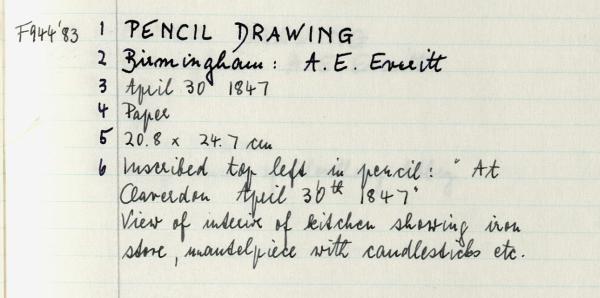 F944'83 1 PENCIL DRAWING
2 Birmingham: A. E. Everitt
3 April 30 1847
4 Paper
5 20.8 x 24.7 cm
6 Inscribed top left in pencil: "At
Claverdon April 30th 1847"
View of interior of kitchen showing iron
stove, mantelpiece with candlesticks etc.